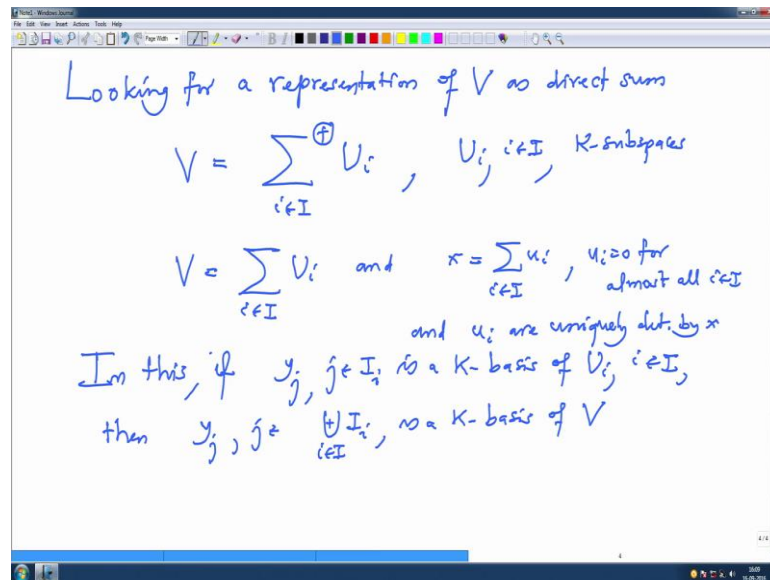 Note1 - Windows Journal
File Edit View Insert Actions Tools Help
Page Width
Looking for a representation of V as direct sum
V = ∑^⊕_{i∈I} U_i , U_i, i∈I, K-subspaces
V = ∑_{i∈I} U_i and x = ∑_{i∈I} u_i , u_i=0 for
almost all i∈I
and u_i are uniquely det. by x
In this, if y_j, j∈I_i is a K-basis of U_i, i∈I,
then y_j, j∈ ⊎_{i∈I} I_i, is a K-basis of V
4/4
4
16:09